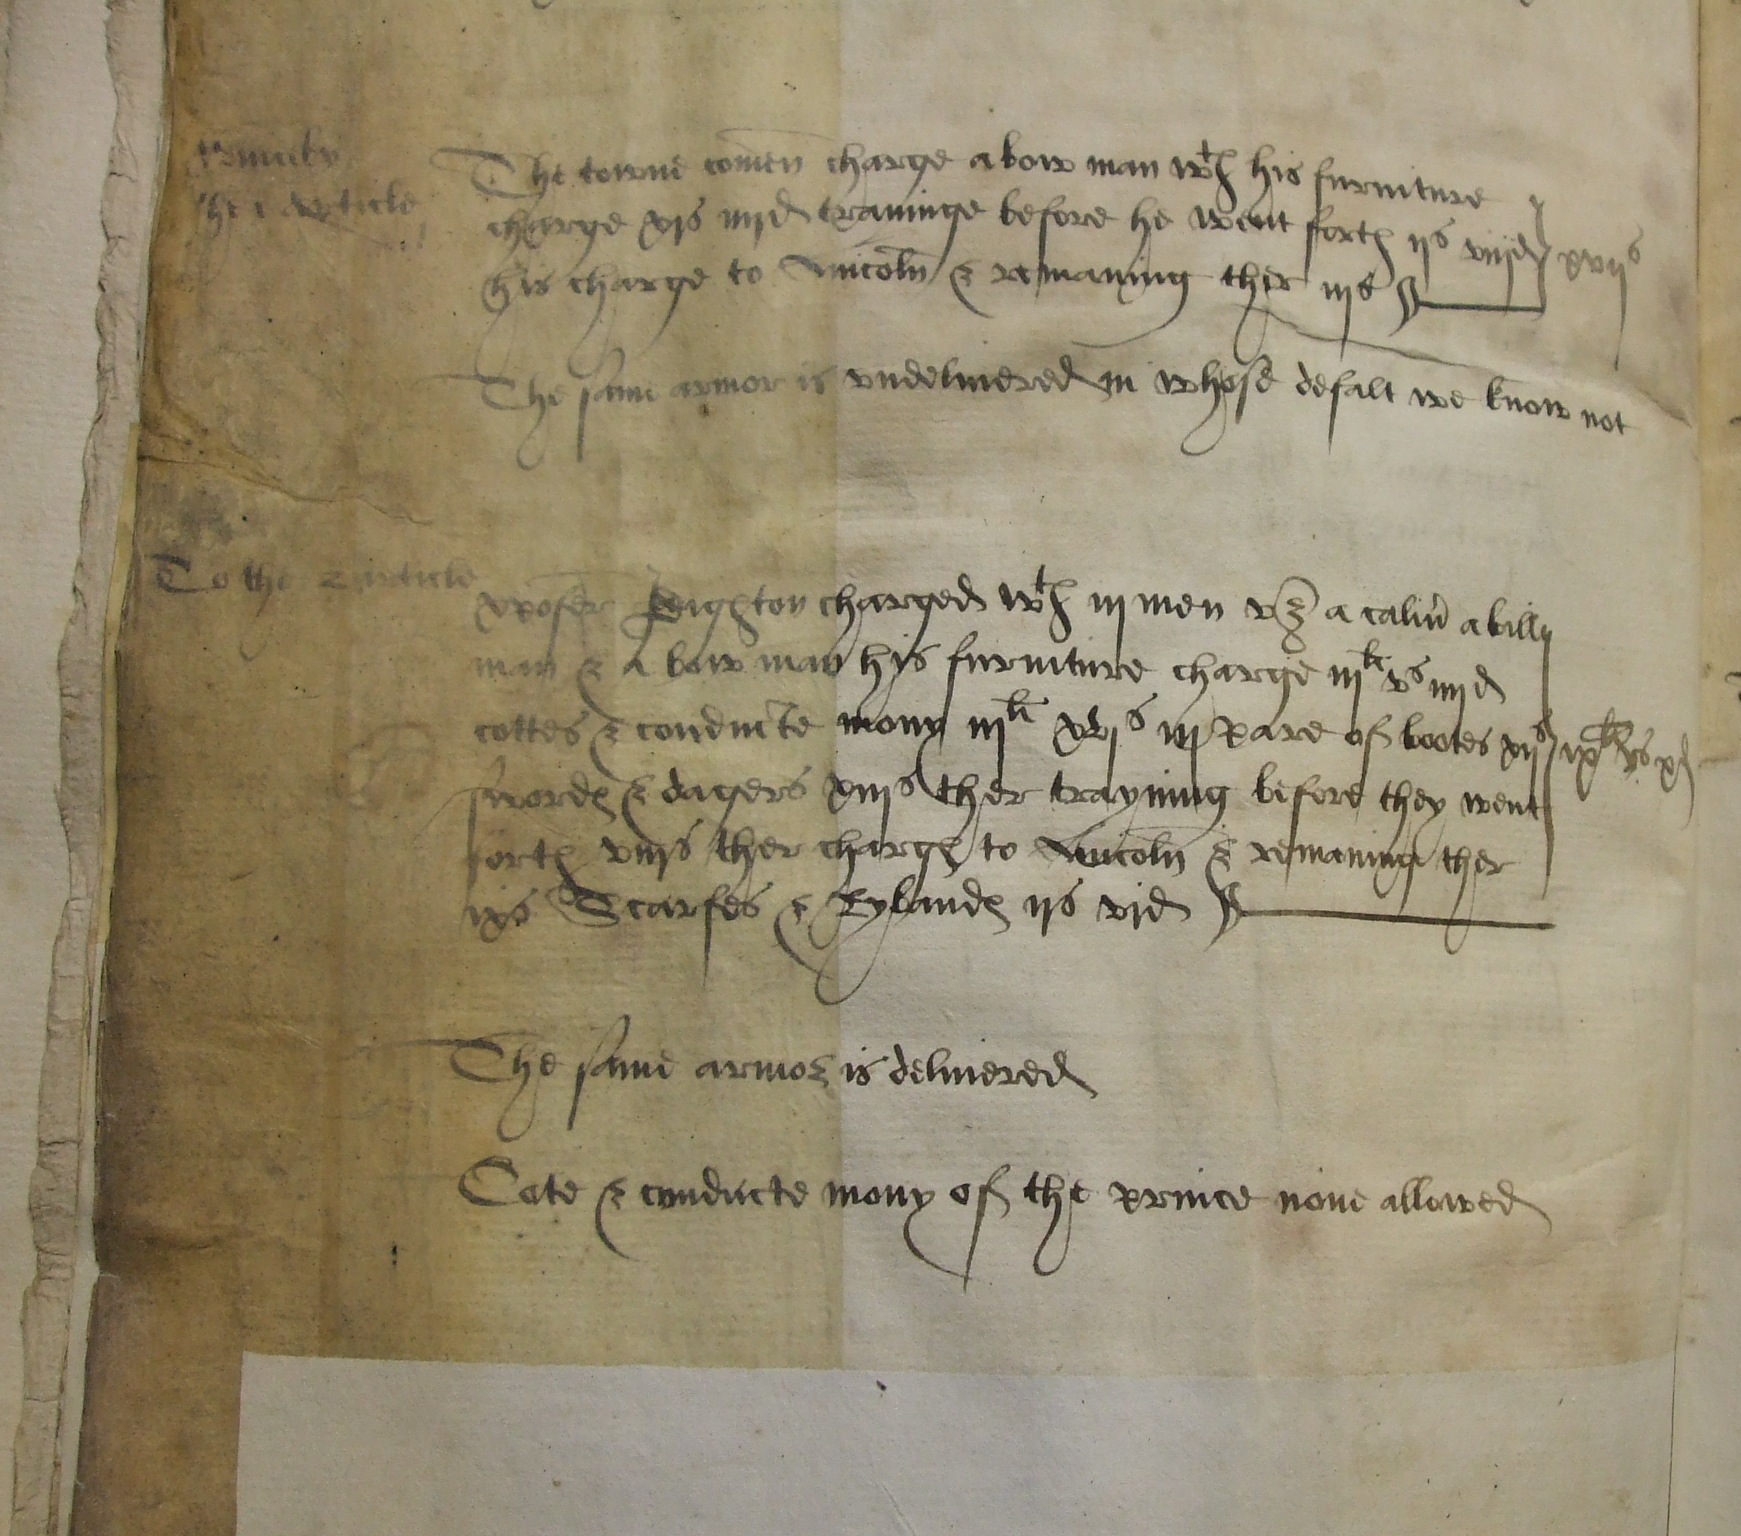 the i Article
The towne comen charge a bow man wth his furniture
charge xis iiijd traininge before he went forth ijs viijd xvijs
his charge to Lincoln & remaning ther iijs
The same armor is vndeliuered in whose defalt we know not
To the 2 article
charged wth iij men vz a caliu a bill
man & a bow man his furniture charge iijli vs iiijd
cottes & conducte mony iijli iij pare of bootes xijs ixli vs xd
swordes & dagers xiiijs ther trayning before they went
forth viijs ther charges to Lincoln & remaning ther
ixs Scarfes & Rybandes ijs vjd
The same armor is deliuered
Cote & conducte mony of the prince none allowed